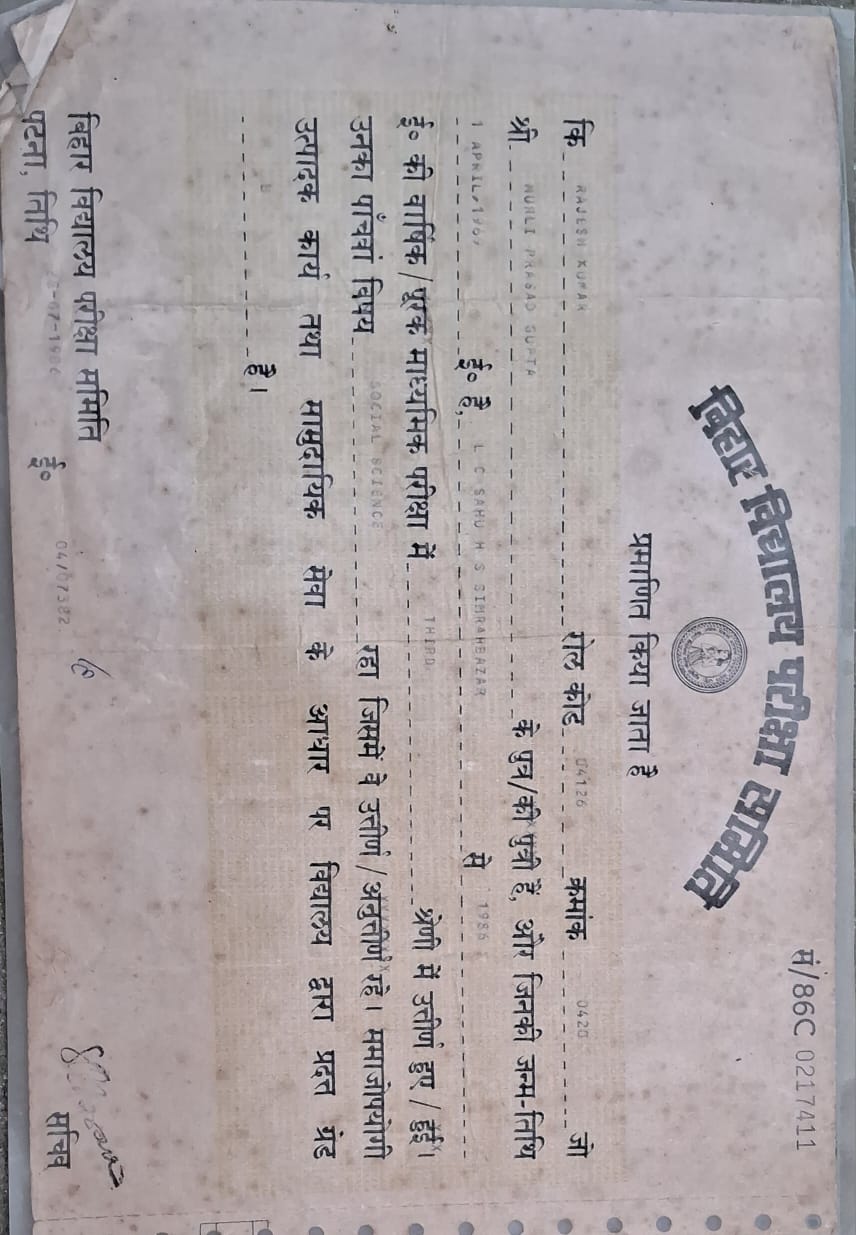 सं/86C 0217411
बिहार विद्यालय परीक्षा समिति
प्रमाणित किया जाता है
कि RAJESH KUMAR रोल कोड 04126 क्रमांक 0420 जो
श्री MURLI PRASAD GUPTA के पुत्र/की पुत्री हैं, और जिनकी जन्म-तिथि
1 APRIL, ई० है, L C SAHU H S SIMRAHBAZAR से 1986
ई० की वार्षिक/पूरक माध्यमिक परीक्षा में THIRD श्रेणी में उत्तीर्ण हुए / हुई।
उनका पाँचवां विषय SOCIAL SCIENCE रहा जिसमें वे उत्तीर्ण/अनुत्तीर्ण रहे। समाजोपयोगी
उत्पादक कार्य तथा सामुदायिक सेवा के आधार पर विद्यालय द्वारा प्रदत्त ग्रेड
है।
बिहार विद्यालय परीक्षा समिति
पटना, तिथि ई० 04/07382
सचिव